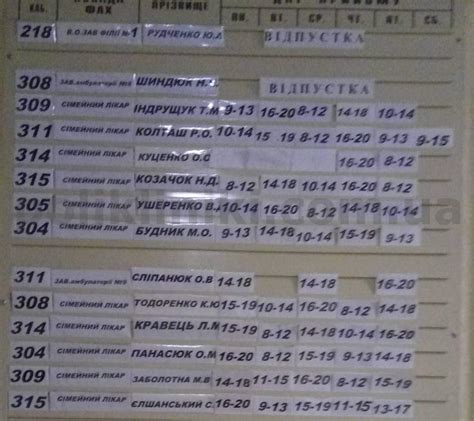 КАБ. ФАХ ПРІЗВИЩЕ ПН. ВТ. СР. ЧТ. ПТ. СБ.
218 В.О.ЗАВ ФІЛІЇ №1 РУДЧЕНКО Ю. ВІДПУСТКА
308 ЗАВ.амбулаторії ШИНДЮК Н. ВІДПУСТКА
309 СІМЕЙНИЙ ЛІКАР ІНДРУЩУК Т.М 9-13 16-20 8-12 14-18 10-14
311 СІМЕЙНИЙ ЛІКАР КОЛТАШ Р.О. 10-14 15 19 8-12 16-20 9-13 9-15
314 СІМЕЙНИЙ ЛІКАР КУЦЕНКО О.С 16-20 8-12
315 СІМЕЙНИЙ ЛІКАР КОЗАЧОК Н.Д. 8-12 14-18 10-14 16-20 8-12
305 СІМЕЙНИЙ ЛІКАР УШЕРЕНКО В. 10-14 16-20 8-12 14-18 10-14
304 СІМЕЙНИЙ ЛІКАР БУДНИК М.О. 9-13 14-18 10-14 15-19 9-13
311 ЗАВ.амбулаторії СЛІПАНЮК О.В 14-18 14-18 16-20
308 СІМЕЙНИЙ ЛІКАР ТОДОРЕНКО К.Ю 15-19 10-14 16-20 8-12 14-18
314 СІМЕЙНИЙ ЛІКАР КРАВЕЦЬ Л.М 15-19 8-12 14-18 10-14 16-20
304 СІМЕЙНИЙ ЛІКАР ПАНАСЮК О.М 16-20 8-12 15-19 9-13 14-18
309 СІМЕЙНИЙ ЛІКАР ЗАБОЛОТНА М.В 14-18 11-15 16-20 8-12 15-19
315 СІМЕЙНИЙ ЛІКАР ЄЛШАНСЬКИЙ С. 16-20 9-13 15-19 11-15 13-17